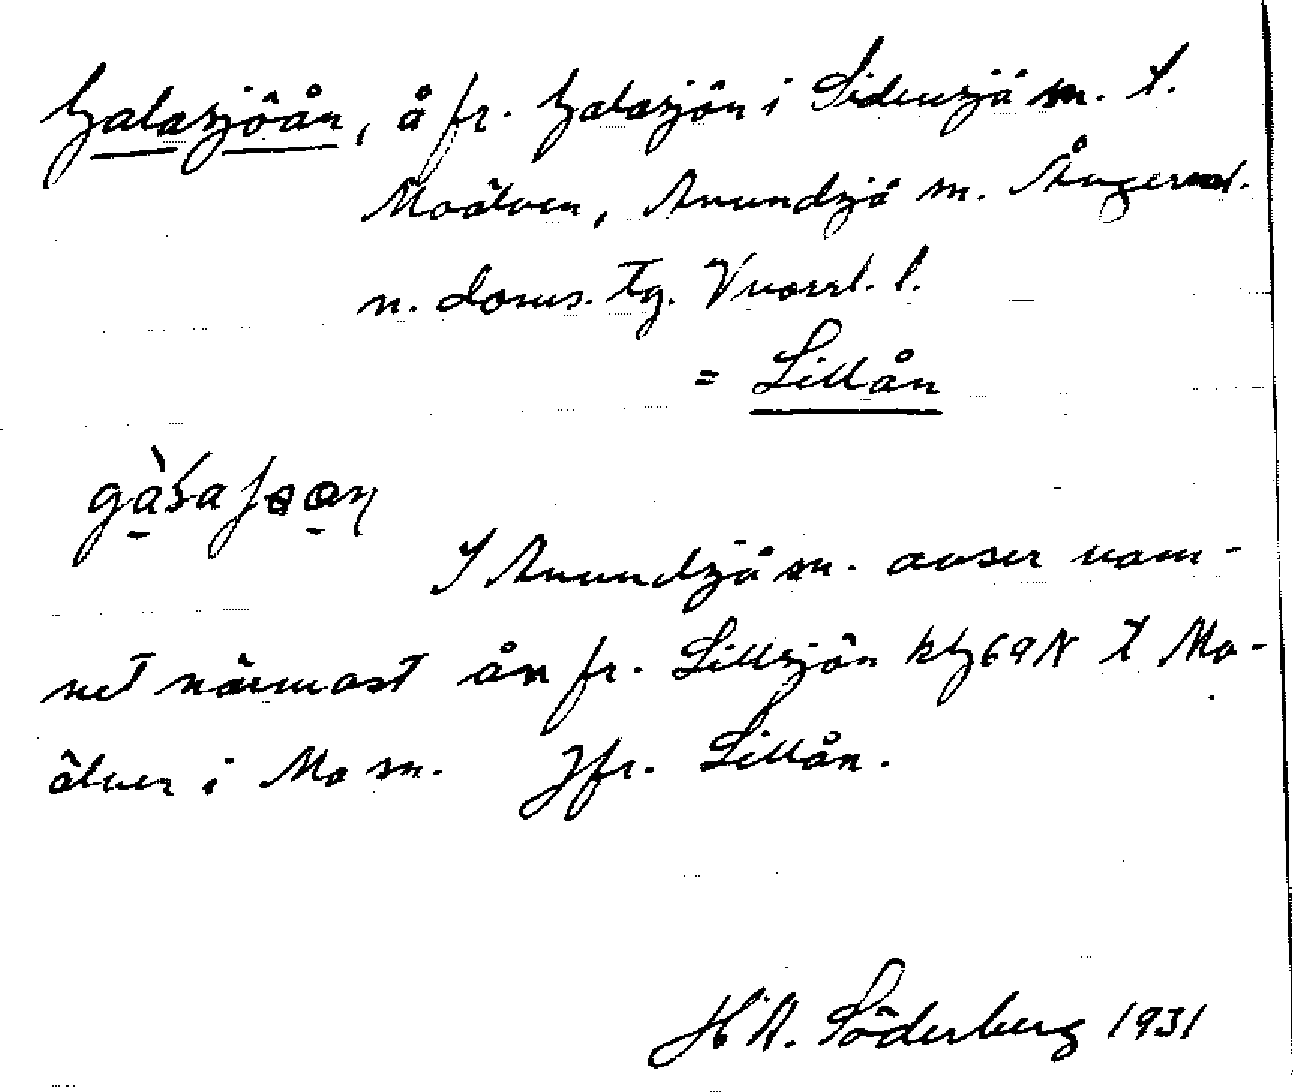 Galasjöån, å fr. Galasjön i Sidensjö sn. t.
Moälven, Anundsjö sn. Ångerml.
n. doms. tg. Vnorrl. l.
= Lillån
I Anundsjö sn. avser nam-
net närmast ån fr. Lillsjön kbl 69 N t Mo-
älven i Mo sn. Jfr. Lillån.
H A. Söderberg 1931